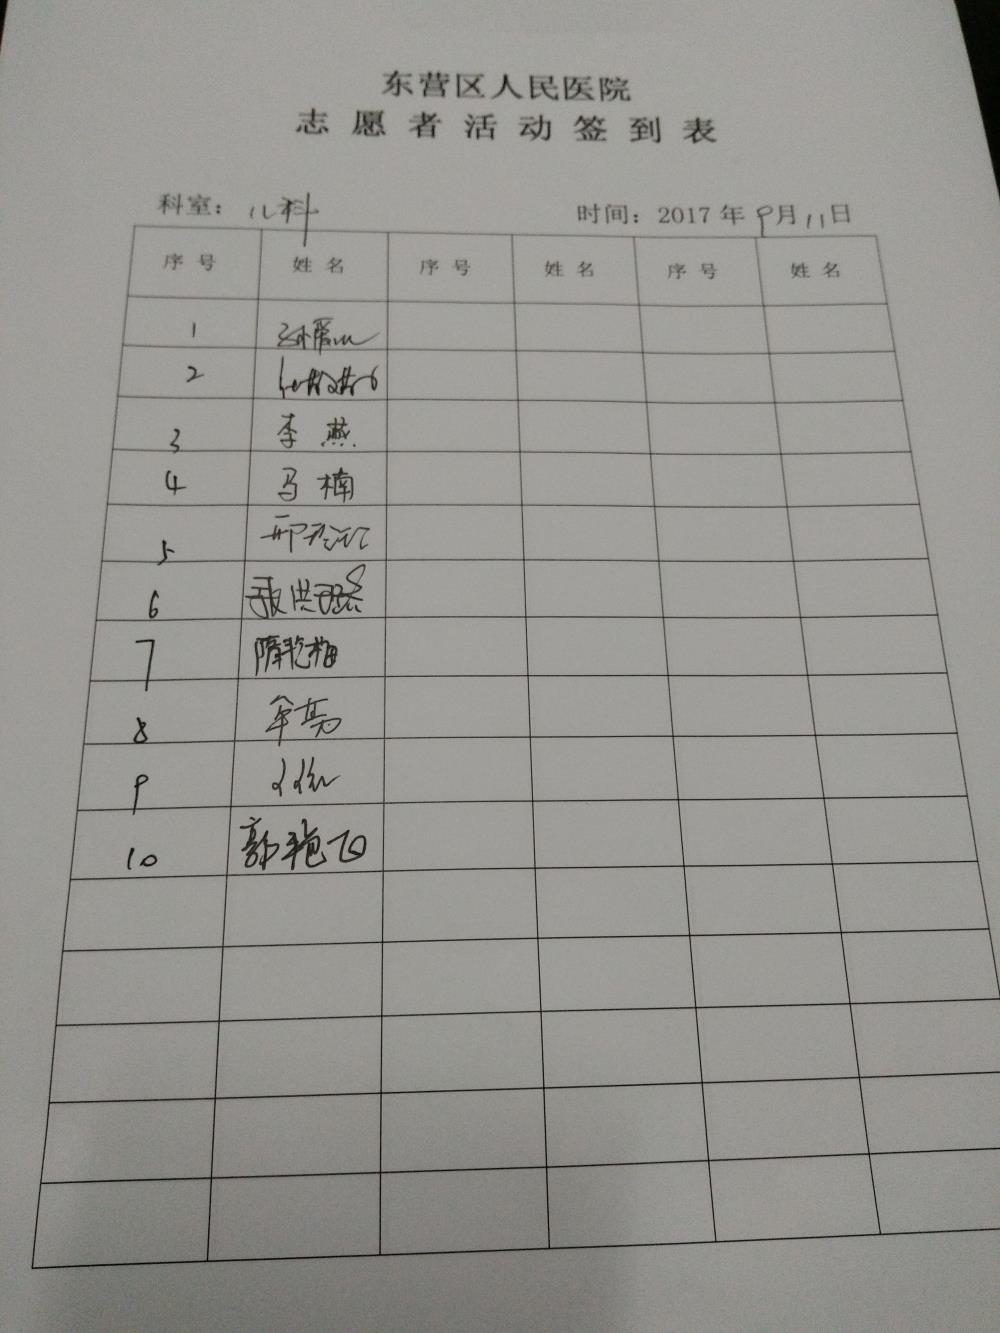 东营区人民医院
志愿者活动签到表
科室：儿科 时间：2017年9月11日
序号 姓名 序号 姓名 序号 姓名
1
2
3 李燕
4 马楠
5 邢
6 洪
7 隋艳梅
8
9
10 郭艳飞